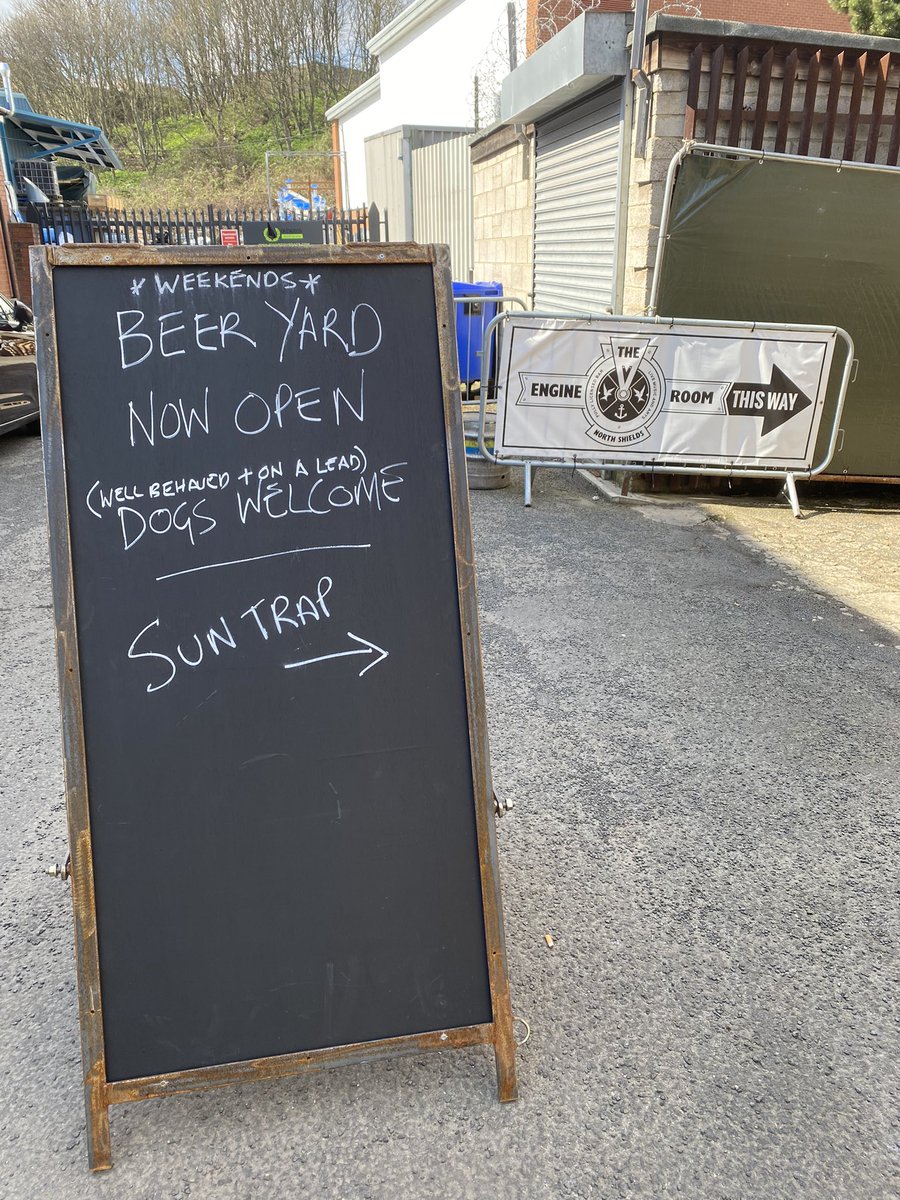 *WEEKENDS*
BEER YARD
NOW OPEN
(WELL BEHAVED + ON A LEAD)
DOGS WELCOME
SUN TRAP
THE
ENGINE ROOM THIS WAY
NORTH SHIELDS